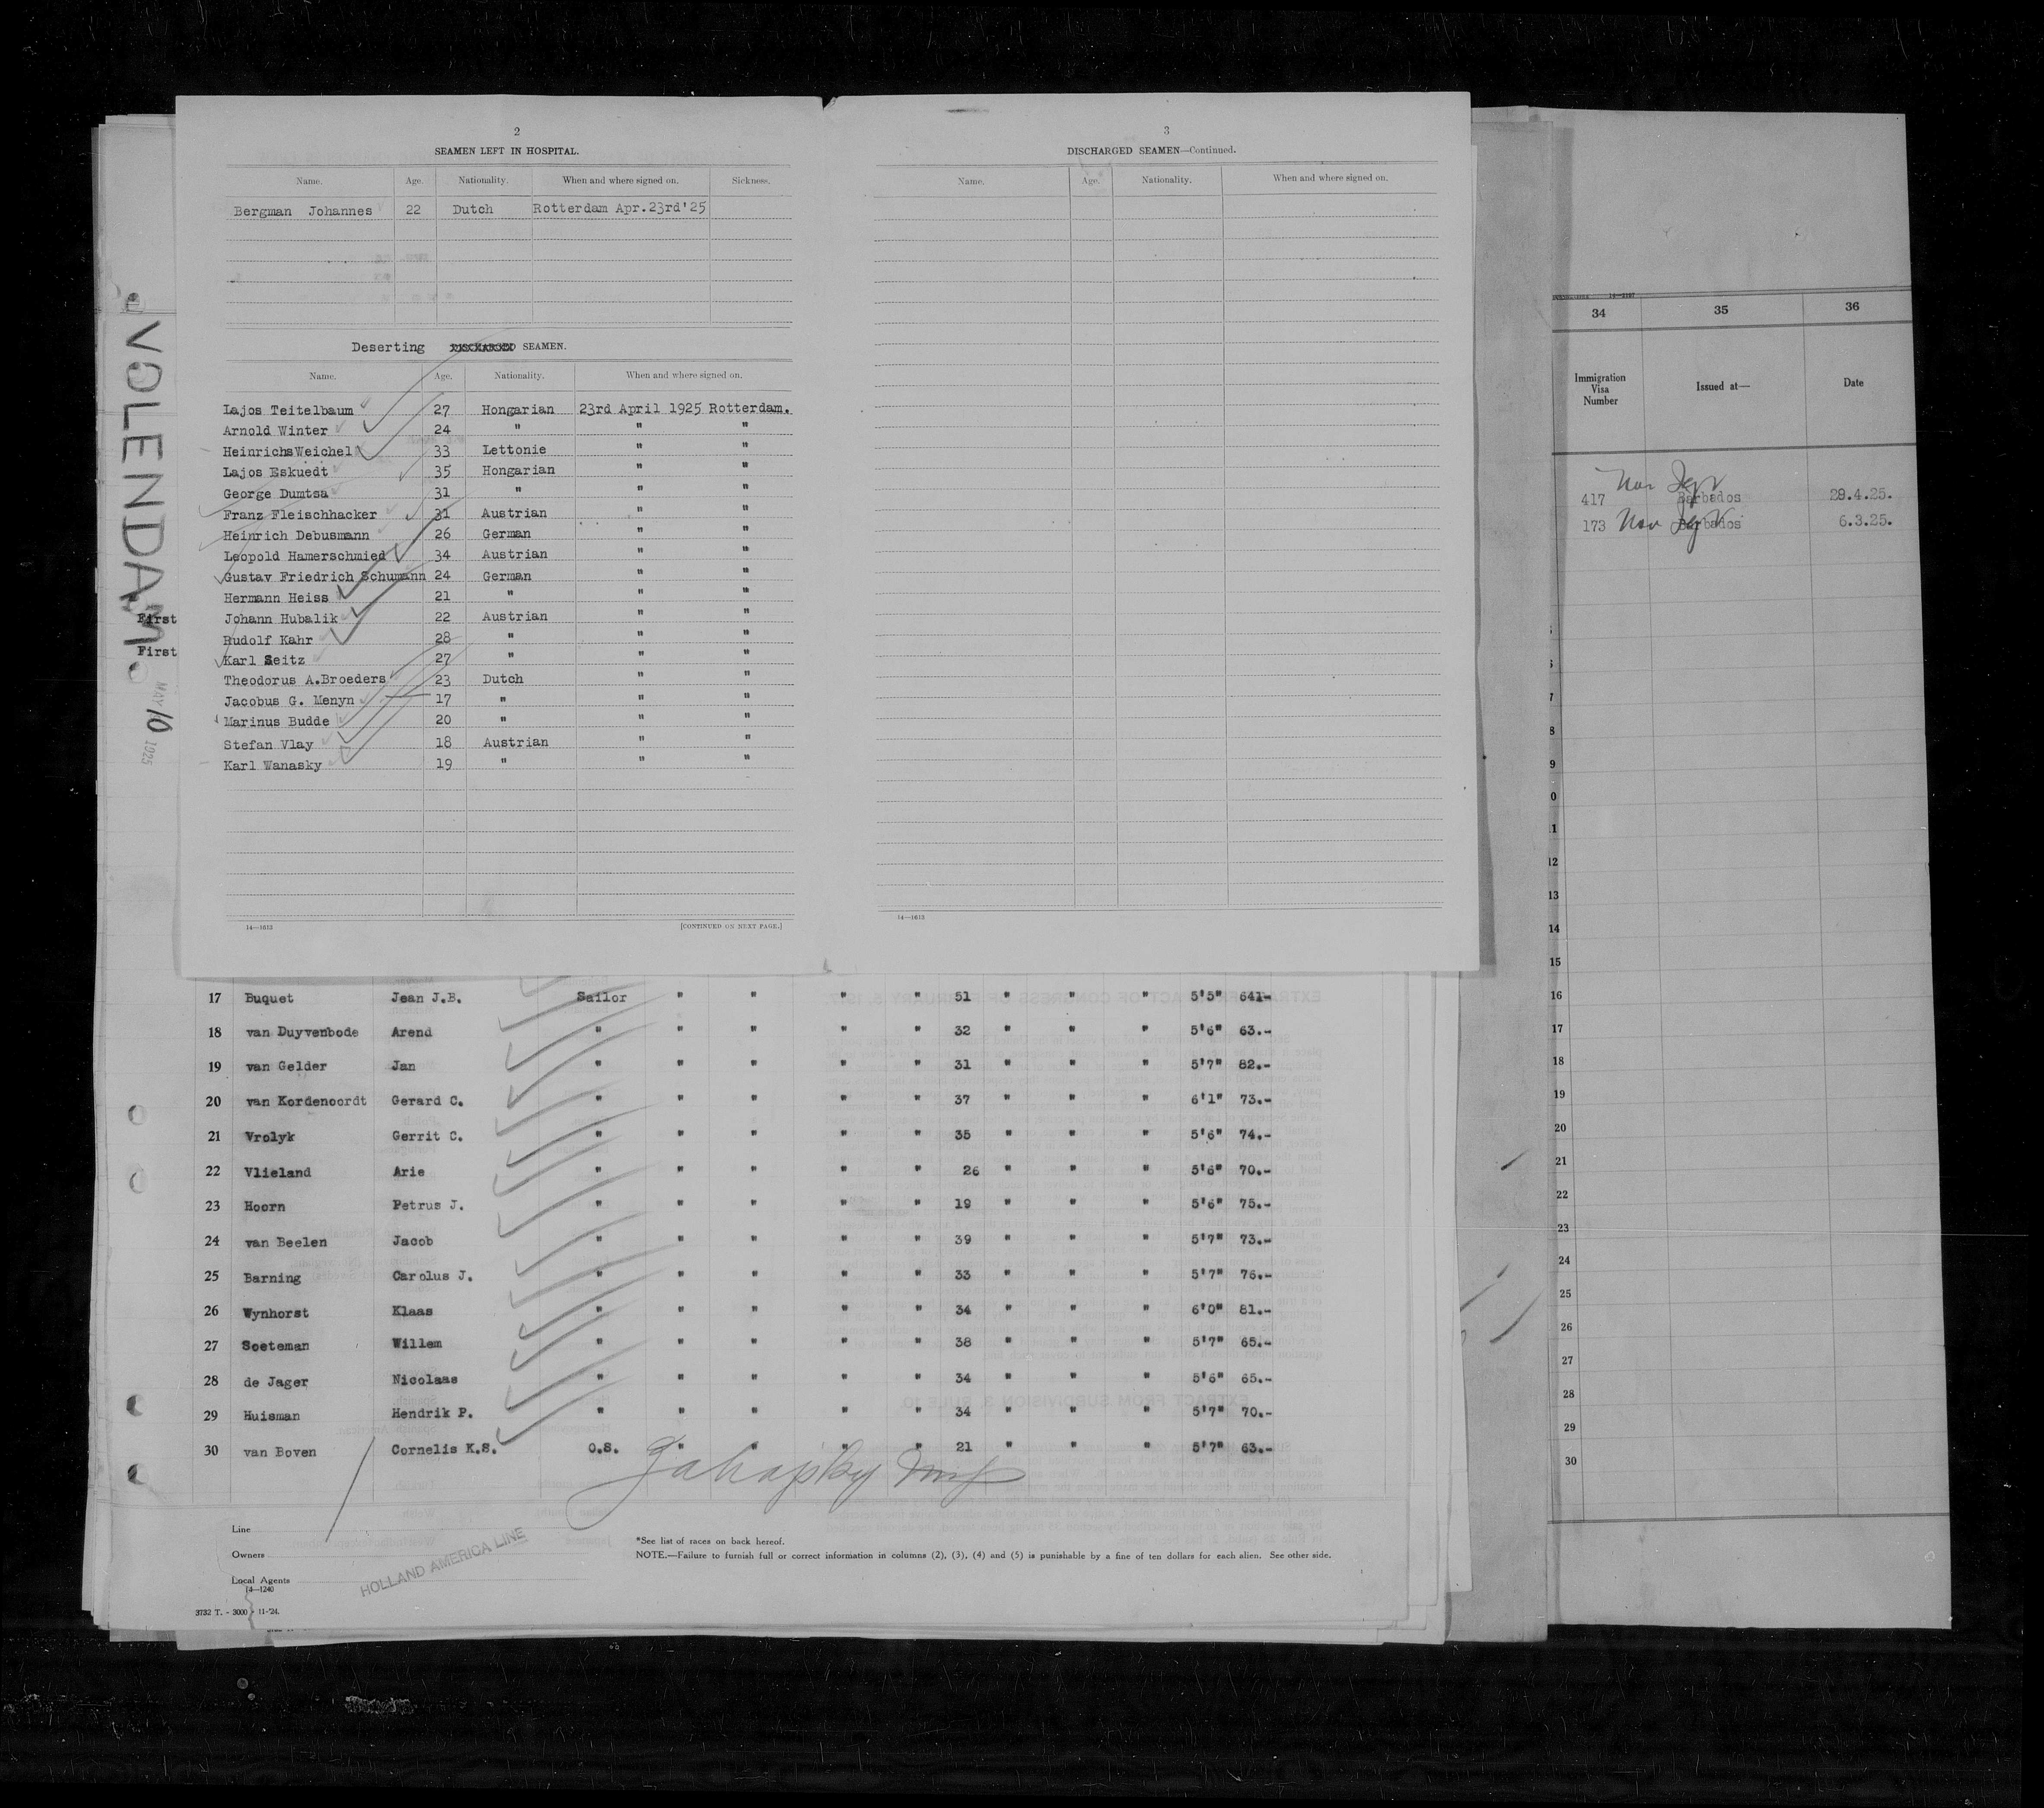 2
SEAMEN LEFT IN HOSPITAL.
Name. Age. Nationality. When and where signed on. Sickness.
Bergman Johannes 22 Dutch Rotterdam Apr.23rd'25
Deserting DISCHARGED SEAMEN.
Name. Age. Nationality. When and where signed on.
Lajos Teitelbaum 27 Hongarian 23rd April 1925 Rotterdam.
Arnold Winter 24 " " "
HeinrichsWeichel 33 Lettonie " "
Lajos Eskuedt 35 Hongarian " "
George Dumtsa 31 " " "
Franz Fleischhacker 31 Austrian " "
Heinrich Debusmann 26 German " "
Leopold Hamerschmied 34 Austrian " "
Gustav Friedrich Schumann 24 German " "
Hermann Heiss 21 " " "
Johann Hubalik 22 Austrian " "
Rudolf Kahr 28 " " "
Karl Seitz 27 " " "
Theodorus A.Broeders 23 Dutch " "
Jacobus G. Menyn 17 " " "
Marinus Budde 20 " " "
Stefan Vlay 18 Austrian " "
Karl Wanasky 19 " " "
14—1613 [CONTINUED ON NEXT PAGE.]
3
DISCHARGED SEAMEN—Continued.
Name. Age. Nationality. When and where signed on.
14—1613
VOLENDAM.
MAY 10 1925
First
First
17 Buquet Jean J.B. Sailor " " " " 51 " " " 5'5" 641-
18 van Duyvenbode Arend " " " " " 32 " " " 5'6" 63.-
19 van Gelder Jan " " " " " 31 " " " 5'7" 82.-
20 van Kordenoordt Gerard C. " " " " " 37 " " " 6'1" 73.-
21 Vrolyk Gerrit C. " " " " " 35 " " " 5'6" 74.-
22 Vlieland Arie " " " " " 26 " " " 5'6" 70.-
23 Hoorn Petrus J. " " " " " 19 " " " 5'6" 75.-
24 van Beelen Jacob " " " " " 39 " " " 5'7" 73.-
25 Barning Carolus J. " " " " " 33 " " " 5'7" 76.-
26 Wynhorst Klaas " " " " " 34 " " " 6'0" 81.-
27 Soeteman Willem " " " " " 38 " " " 5'7" 65.-
28 de Jager Nicolaas " " " " " 34 " " " 5'6" 65.-
29 Huisman Hendrik P. " " " " " 34 " " " 5'7" 70.-
30 van Boven Cornelis K.S. O.S. " " " " 21 " " " 5'7" 63.-
Line
Owners
Local Agents
HOLLAND AMERICA LINE
*See list of races on back hereof.
NOTE.—Failure to furnish full or correct information in columns (2), (3), (4) and (5) is punishable by a fine of ten dollars for each alien. See other side.
14—1240
3732 T. - 3000 - 11-'24.
34 35 36
Immigration Visa Number Issued at— Date
417 Barbados 28.4.25.
173 Barbados 6.3.25.
8
9
12
13
14
15
16
17
18
19
20
21
22
23
24
25
26
27
28
29
30